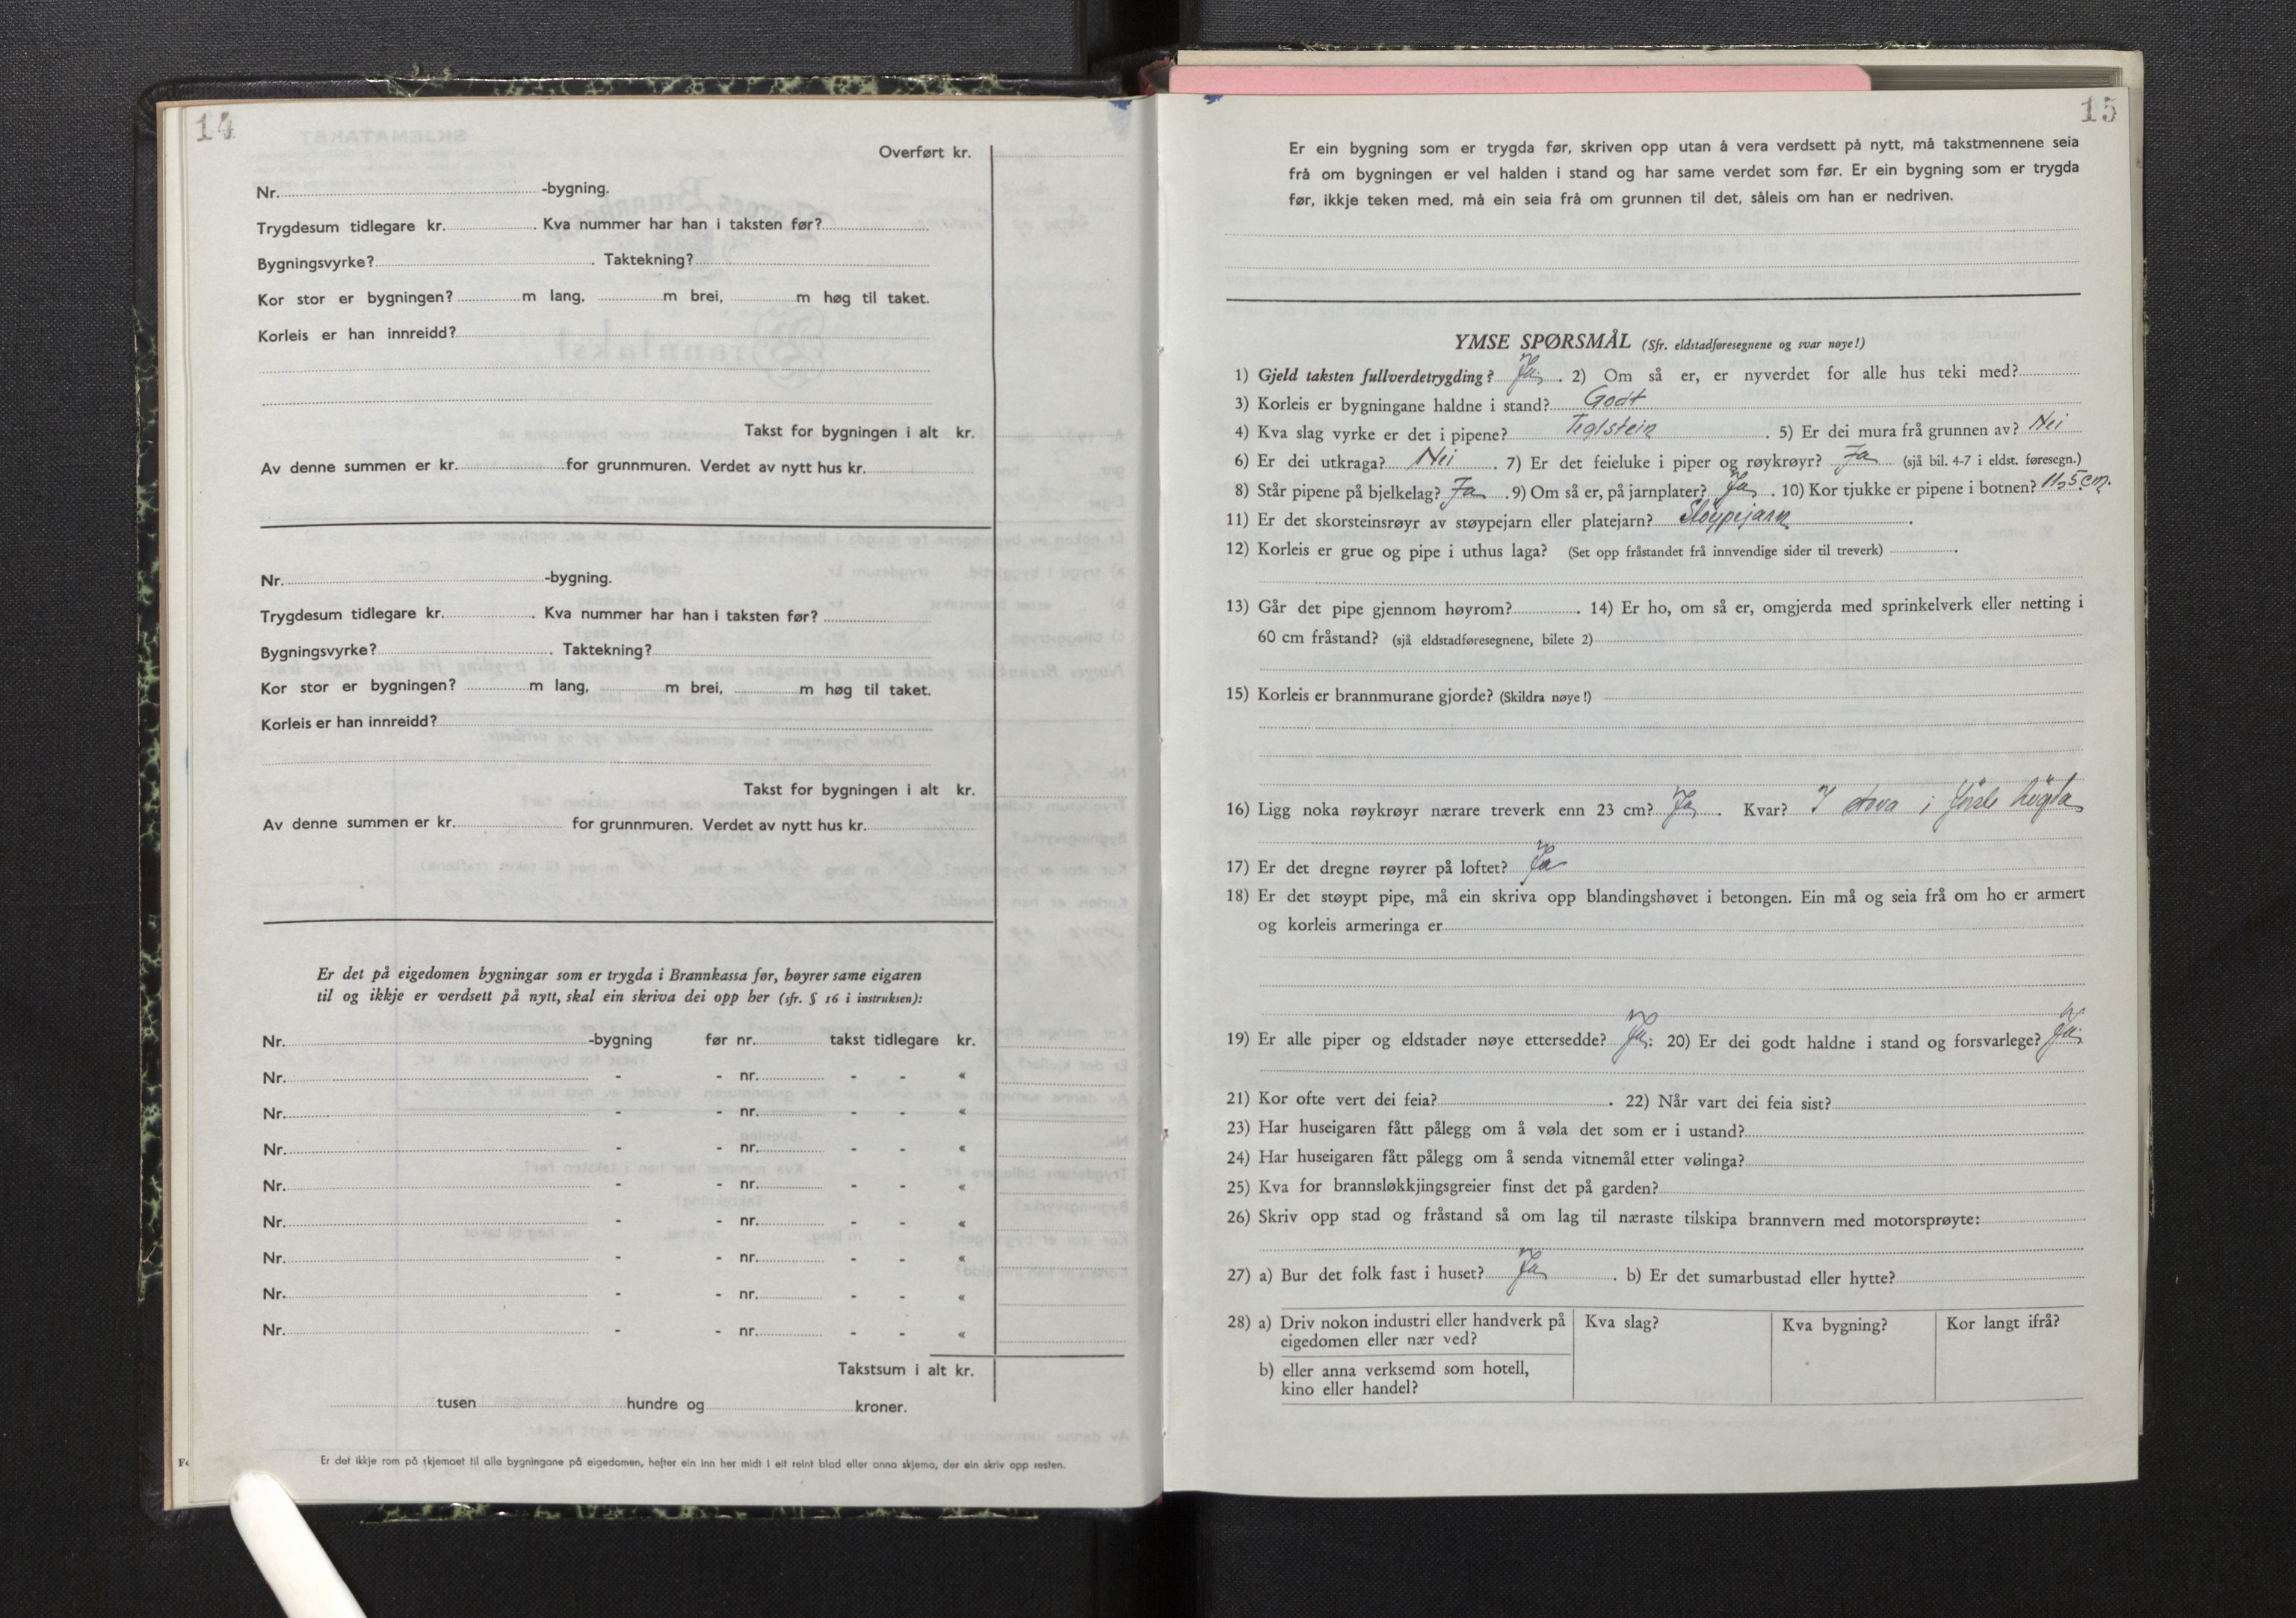 14
Overført kr.
Nr. -bygning.
Trygdesum tidlegare kr. . Kva nummer har han i taksten før?
Bygningsvyrke? . Taktekning?
Kor stor er bygningen? m lang, m brei, m høg til taket.
Korleis er han innreidd?
Takst for bygningen i alt kr.
Av denne summen er kr. for grunnmuren. Verdet av nytt hus kr.
Nr. -bygning.
Trygdesum tidlegare kr. . Kva nummer har han i taksten før?
Bygningsvyrke? . Taktekning?
Kor stor er bygningen? m lang, m brei, m høg til taket.
Korleis er han innreidd?
Takst for bygningen i alt kr.
Av denne summen er kr. for grunnmuren. Verdet av nytt hus kr.
Er det på eigedomen bygningar som er trygda i Brannkassa før, høyrer same eigaren
til og ikkje er verdsett på nytt, skal ein skriva dei opp her (sfr. § 16 i instruksen):
Nr. -bygning før nr. takst tidlegare kr.
Nr. - - nr. - - «
Nr. - - nr. - - «
Nr. - - nr. - - «
Nr. - - nr. - - «
Nr. - - nr. - - «
Nr. - - nr. - - «
Nr. - - nr. - - «
Nr. - - nr. - - «
Takstsum i alt kr.
tusen hundre og kroner.
Er det ikkje rom på skjemaet til alle bygningane på eigedomen, hefter ein inn her midt i eit reint blad eller anna skjema, der ein skriv opp resten.
15
Er ein bygning som er trygda før, skriven opp utan å vera verdsett på nytt, må takstmennene seia
frå om bygningen er vel halden i stand og har same verdet som før. Er ein bygning som er trygda
før, ikkje teken med, må ein seia frå om grunnen til det, såleis om han er nedriven.
YMSE SPØRSMÅL (Sfr. eldstadføresegnene og svar nøye!)
1) Gjeld taksten fullverdetrygding? Ja . 2) Om så er, er nyverdet for alle hus teki med?
3) Korleis er bygningane haldne i stand? Godt
4) Kva slag vyrke er det i pipene? Teglstein . 5) Er dei mura frå grunnen av? Nei
6) Er dei utkraga? Nei . 7) Er det feieluke i piper og røykrøyr? Ja (sjå bil. 4-7 i eldst. føresegn.)
8) Står pipene på bjelkelag? Ja . 9) Om så er, på jarnplater? Ja . 10) Kor tjukke er pipene i botnen? 11,5 cm.
11) Er det skorsteinsrøyr av støypejarn eller platejarn? Støypejarn .
12) Korleis er grue og pipe i uthus laga? (Set opp fråstandet frå innvendige sider til treverk) .
13) Går det pipe gjennom høyrom? . 14) Er ho, om så er, omgjerda med sprinkelverk eller netting i
60 cm fråstand? (sjå eldstadføresegnene, bilete 2)
15) Korleis er brannmurane gjorde? (Skildra nøye!)
16) Ligg noka røykrøyr nærare treverk enn 23 cm? Ja . Kvar? I stova i første høgda
17) Er det dregne røyrer på loftet? Ja
18) Er det støypt pipe, må ein skriva opp blandingshøvet i betongen. Ein må og seia frå om ho er armert
og korleis armeringa er
19) Er alle piper og eldstader nøye ettersedde? Ja: 20) Er dei godt haldne i stand og forsvarlege? Ja
21) Kor ofte vert dei feia? . 22) Når vart dei feia sist?
23) Har huseigaren fått pålegg om å vøla det som er i ustand?
24) Har huseigaren fått pålegg om å senda vitnemål etter vølinga?
25) Kva for brannsløkkjingsgreier finst det på garden?
26) Skriv opp stad og fråstand så om lag til næraste tilskipa brannvern med motorsprøyte:
27) a) Bur det folk fast i huset? Ja . b) Er det sumarbustad eller hytte?
28) a) Driv nokon industri eller handverk på Kva slag? Kva bygning? Kor langt ifrå?
eigedomen eller nær ved?
b) eller anna verksemd som hotell,
kino eller handel?